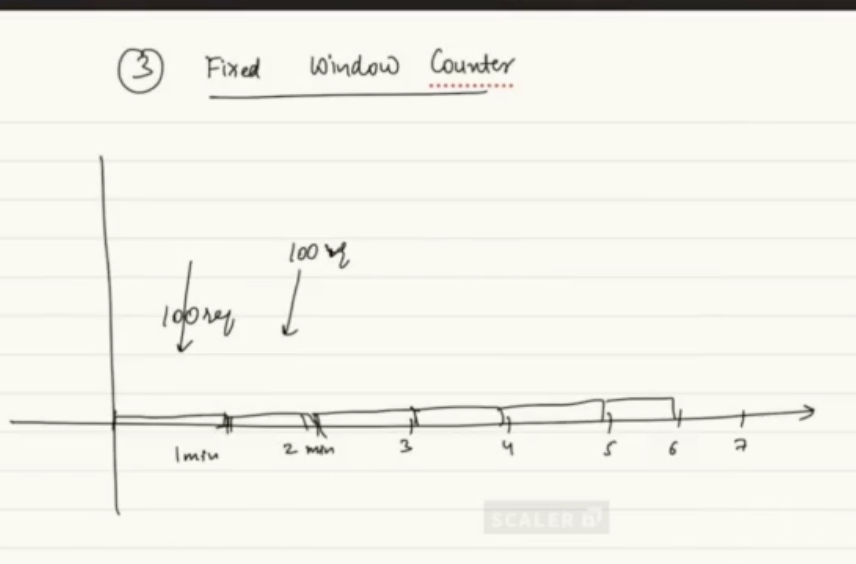 ③ Fixed Window Counter
100 req
100 req
1 min 2 min 3 4 5 6 7
SCALER